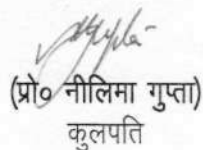 (प्रो० नीलिमा गुप्ता)
कुलपति